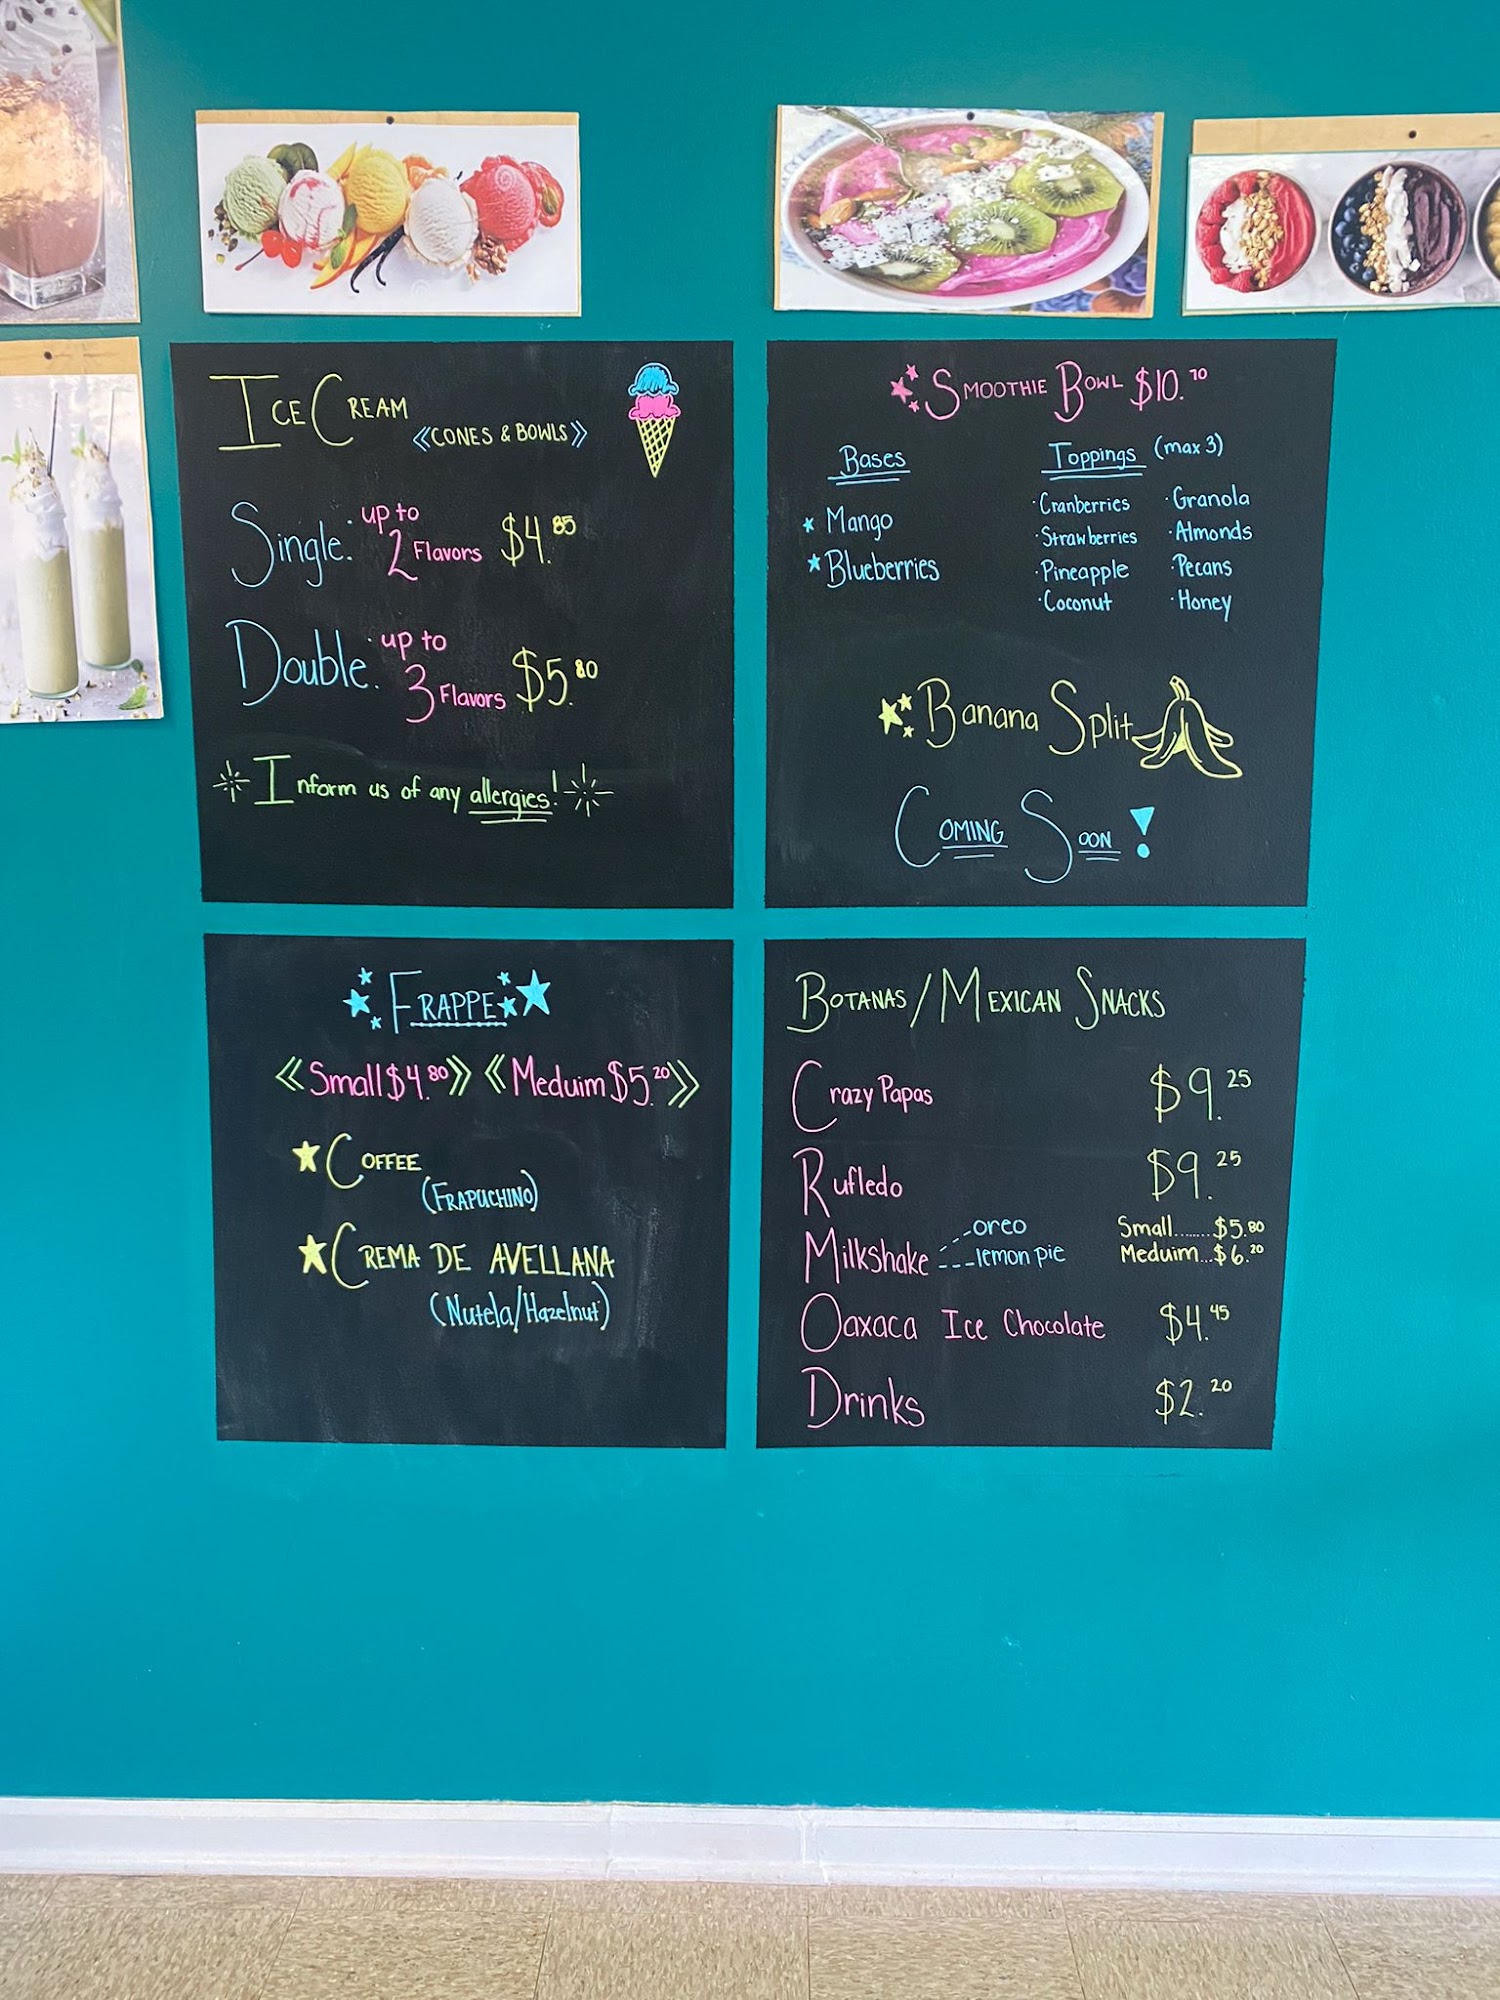 Ice Cream
《CONES & BOWLS》
Single: up to 2 Flavors $4.85
Double: up to 3 Flavors $5.80
Inform us of any allergies!
Smoothie Bowl $10.70
Bases
Mango
Blueberries
Toppings (max 3)
·Cranberries ·Granola
·Strawberries ·Almonds
·Pineapple ·Pecans
·Coconut ·Honey
Banana Split
Coming Soon!
FRAPPE
《Small $4.80》 《Meduim $5.20》
COFFEE
(FRAPUCHINO)
CREMA DE AVELLANA
(Nutela/Hazelnut)
BOTANAS / MEXICAN SNACKS
Crazy Papas $9.25
Rufledo $9.25
Milkshake oreo Small.......$5.80
lemon pie Meduim...$6.20
Oaxaca Ice Chocolate $4.45
Drinks $2.20